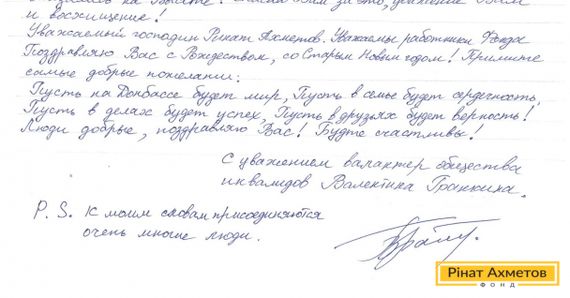 на Донбассе! Вам за это, уважение Вам
и восхищение!
Уважаемый господин Ринат Ахметов. Уважаемы работники Фонда
Поздравляю Вас с Рождеством, со Старым Новым годом! Примите
самые добрые пожелания:
Пусть на Донбассе будет мир, Пусть в семье будет сердечность,
Пусть в делах будет успех, Пусть в друзьях будет верность!
Люди добрые, поздравляю Вас! Будте счастливы!
С уважением валантер общества
инвалидов Валентина Гранкина.
P.S. К моим словам присоединяются
очень многие люди.
Рінат Ахметов
ФОНД